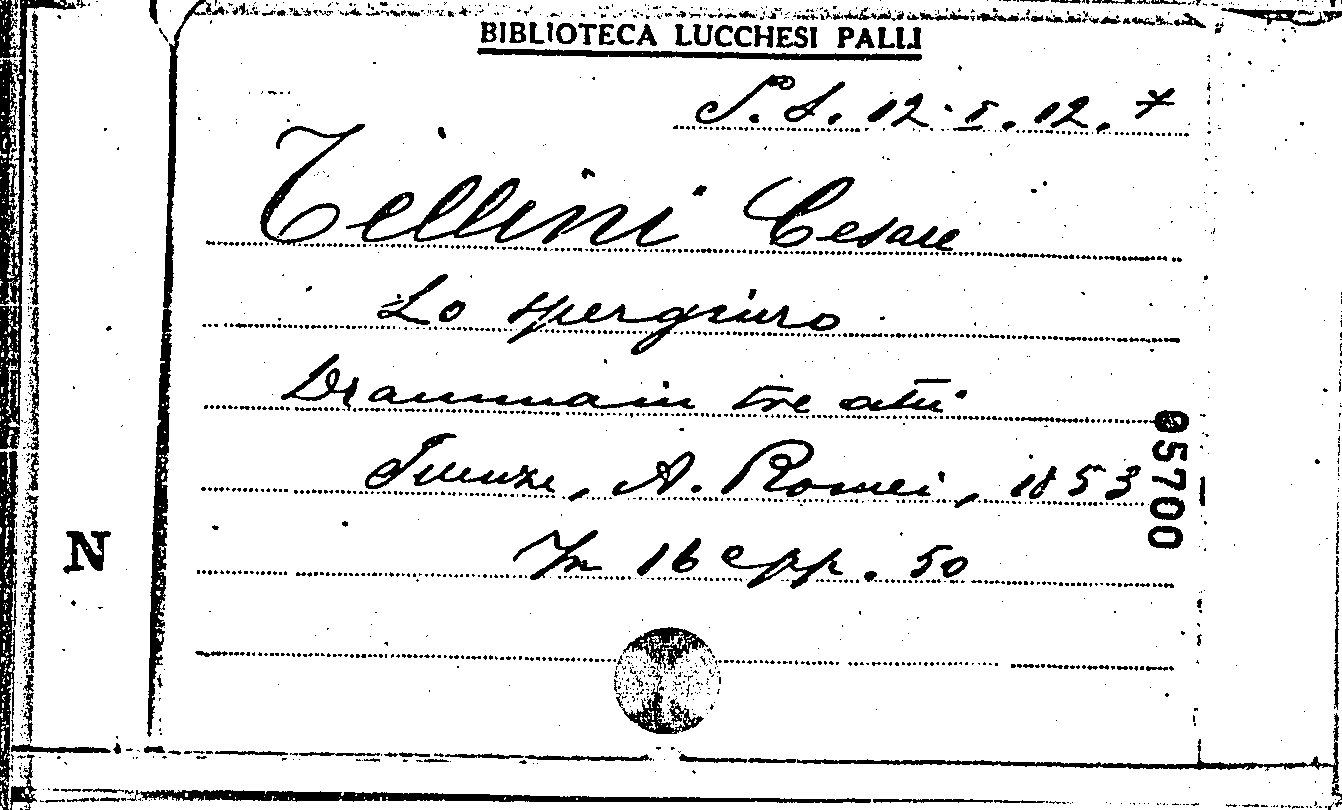 BIBLIOTECA LUCCHESI PALLI
S. S. 12. I. 12. 7
Tellini Cesare
Lo spergiuro
Dramma in tre atti
Firenze, A. Romei, 1853
In 16° pp. 50
05700
N